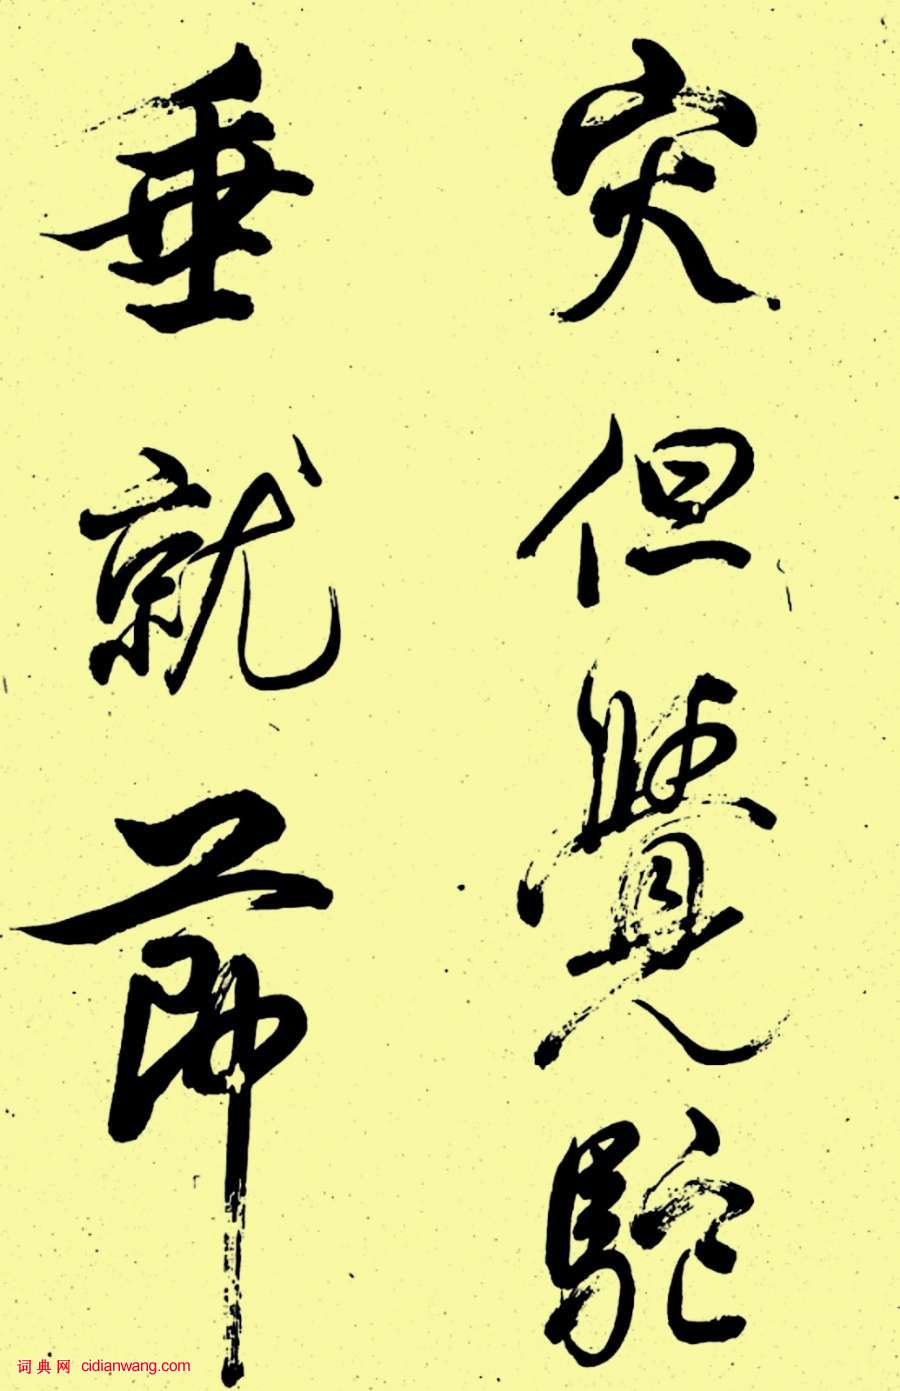 灾但覺駝
垂就節
词典网 cidianwang.com